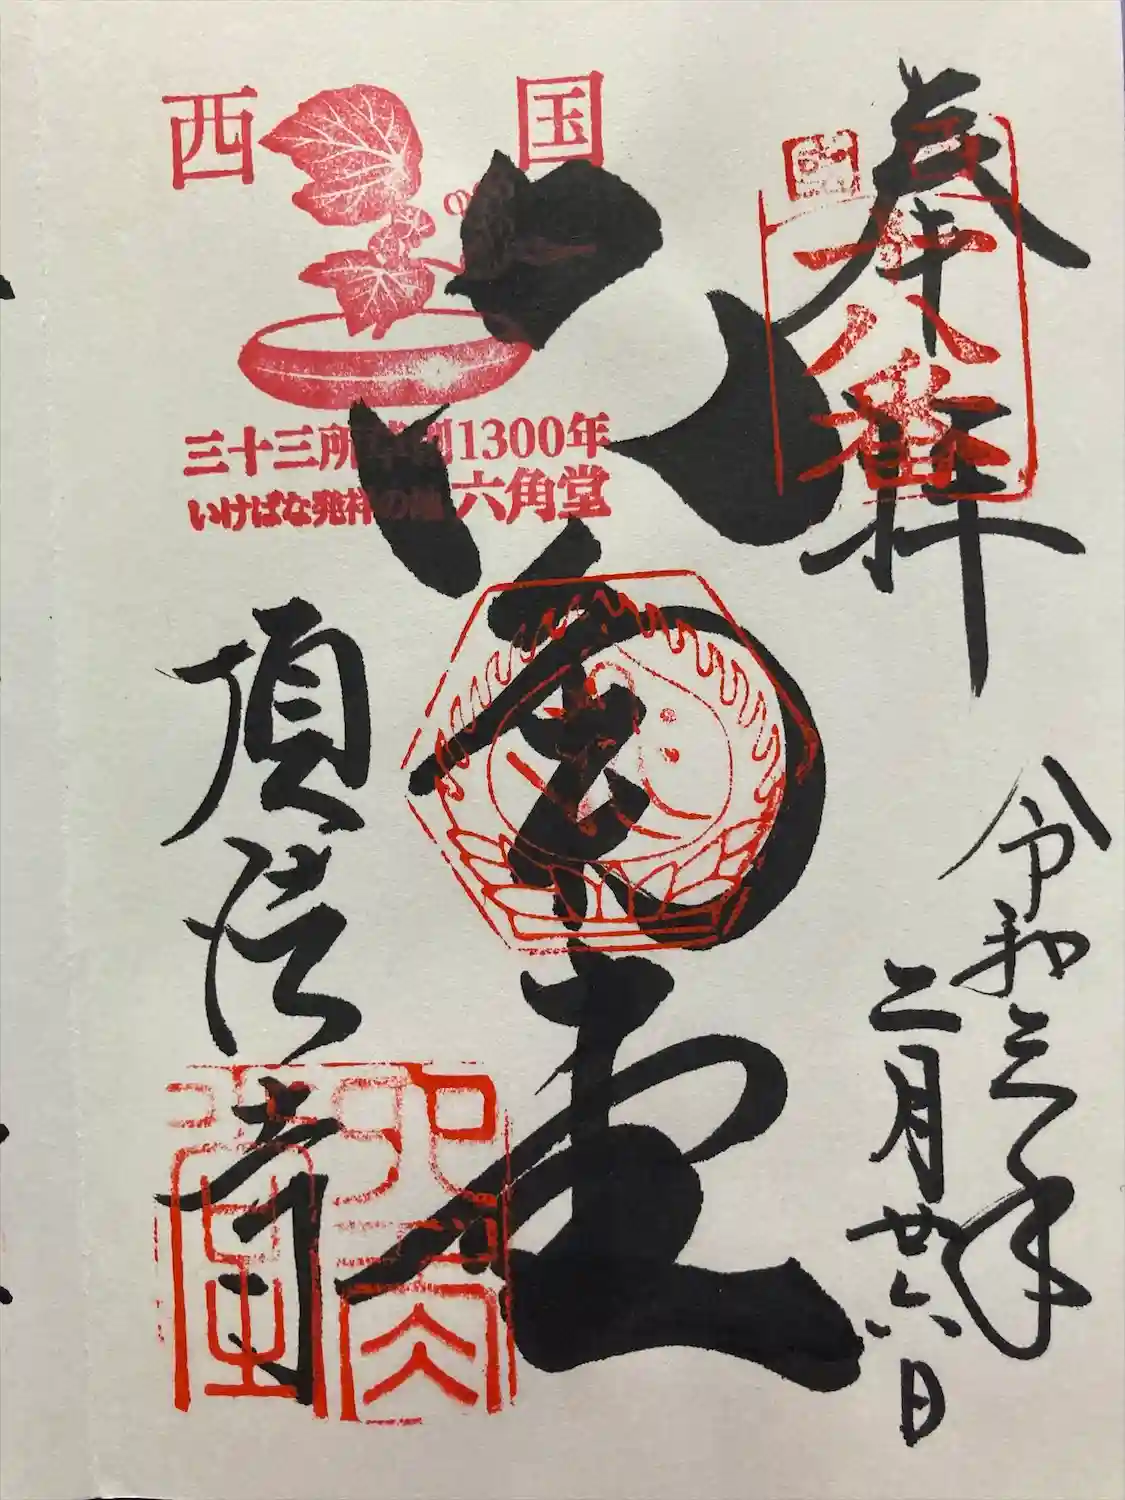 奉拝
西国
十八番
令和三年
二月廿六日
六角堂
西国
三十三所草創1300年
いけばな発祥の地 六角堂
頂法寺